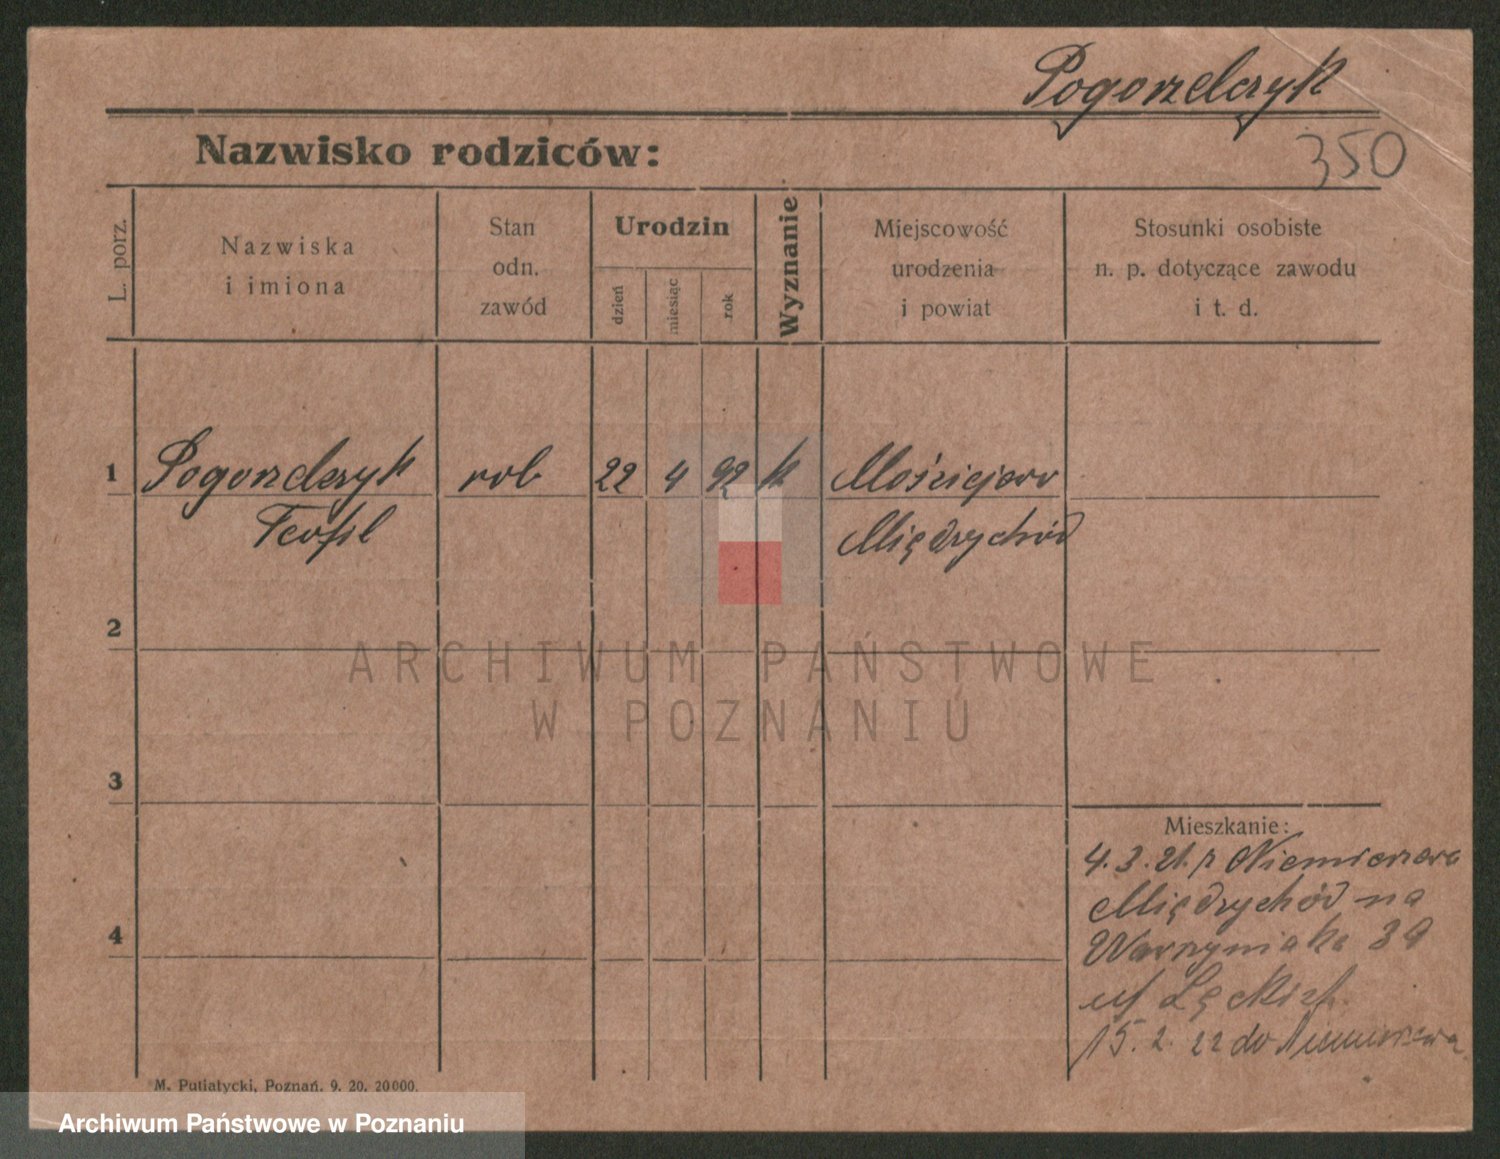 Pogorzelczyk
350
Nazwisko rodziców:
L. porz.
Nazwiska
i imiona
Stan
odn.
zawód
Urodzin
dzień
miesiąc
rok
Wyznanie
Miejscowość
urodzenia
i powiat
Stosunki osobiste
n. p. dotyczące zawodu
i t. d.
1 Pogorzelczyk rob 22 4 92 k Mościejewo
Teofil Międzychód
2
ARCHIWUM PAŃSTWOWE
W POZNANIU
3
Mieszkanie:
4.3.21. z
Międzychód na
4
39
15.2.22 do
M. Putiatycki, Poznań. 9. 20. 20000.
Archiwum Państwowe w Poznaniu